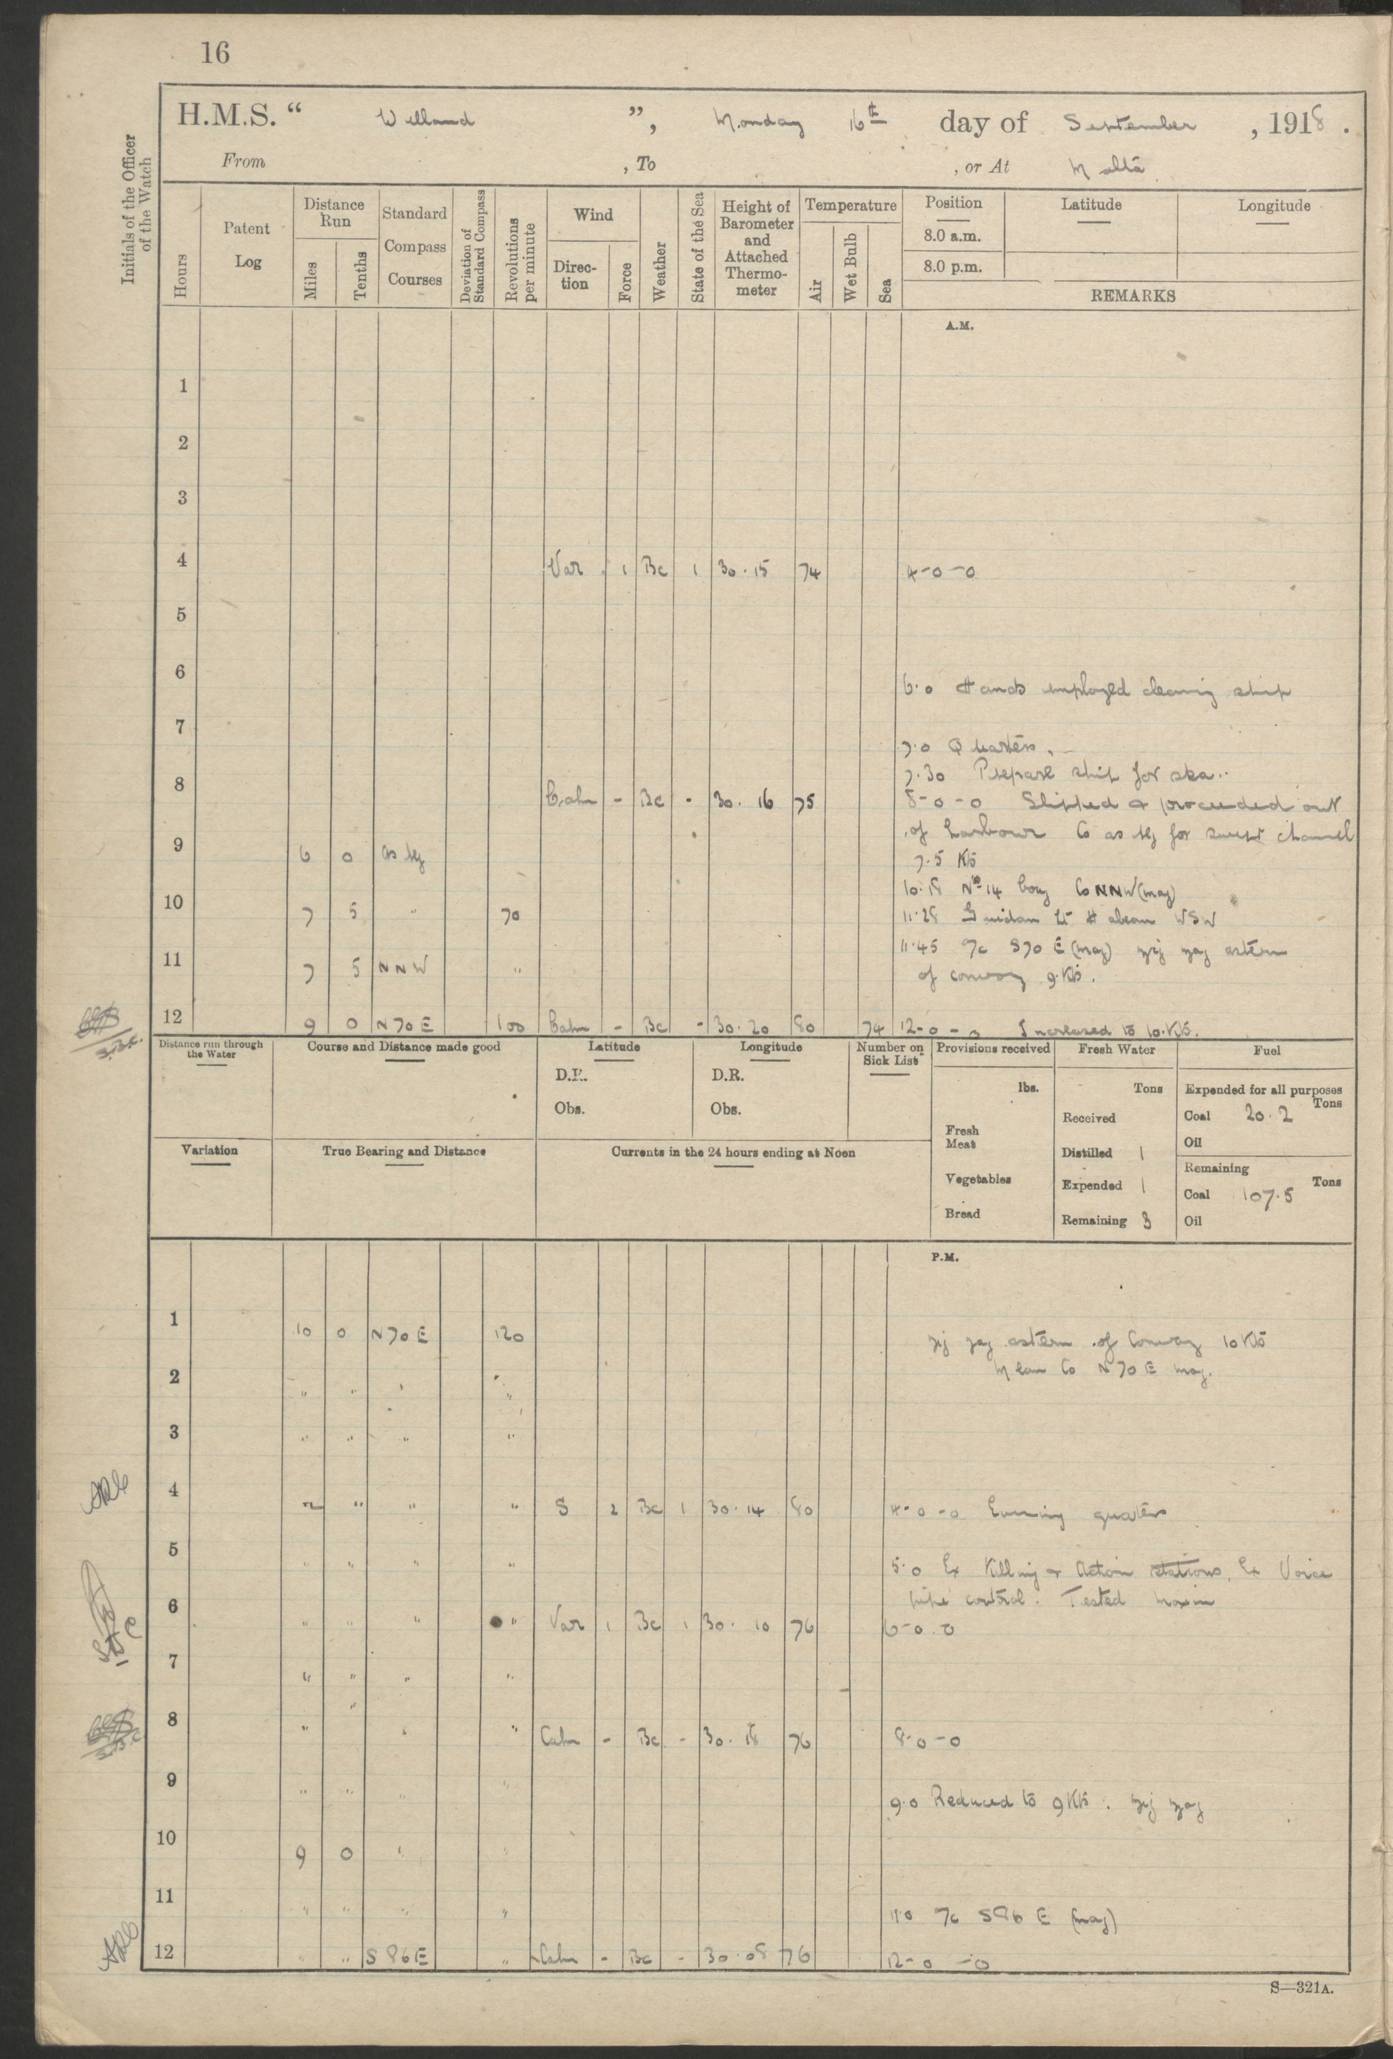 16
H.M.S. “ Welland ”, Monday 16th day of September, 1918.
From , To , or At Malta
Initials of the Officer of the Watch
Hours
Patent Log
Distance Run
Miles
Tenths
Standard Compass Courses
Deviation of Standard Compass
Revolutions per minute
Wind
Direction
Force
Weather
State of the Sea
Height of Barometer and Attached Thermometer
Temperature
Air
Wet Bulb
Sea
Position
8.0 a.m.
8.0 p.m.
Latitude
Longitude
REMARKS
A.M.
1
2
3
4 Var 1 Bc 1 30.15 74 4-0-0
5
6
6.0 Hands employed cleaning ship
7
7.0 Quarters.
7.30 Prepare ship for sea..
8 Calm - Bc - 30.16 75 8-0-0 Slipped & proceeded out
of harbour Co as req for swept channel
9 6 0 as req 7.5 Kts
10.18 No 14 buoy Co NNW (mag)
10 7 5 " 70 11.28 Guidan Lt H abeam WSW
11.45 A/c S70E (mag) zig zag astern
11 7 5 NNW " of convoy 9.Kts.
12 9 0 N70E 100 Calm - Bc - 30.20 80 74 12-0-0 Increased to 10.Kts.
Distance run through the Water
Course and Distance made good
Latitude
D.R.
Obs.
Longitude
D.R.
Obs.
Number on Sick List
Provisions received
lbs.
Fresh Meat
Vegetables
Bread
Fresh Water
Tons
Received
Distilled 1
Expended 1
Remaining 3
Fuel
Expended for all purposes
Tons
Coal 20.2
Oil
Remaining
Tons
Coal 107.5
Oil
Variation
True Bearing and Distance
Currents in the 24 hours ending at Noon
P.M.
1 10 0 N70E 120 zig zag astern of Convoy 10 Kts
2 " " " " Mean Co N70E mag.
3 " " " "
4 " " " " S 2 Bc 1 30.14 80 4-0-0 Evening quarters
5 " " " " 5.0 Ex Killing & Action stations, Ex Voice
pipe control. Tested maxim
6 " " " " Var 1 Bc 1 30.10 76 6-0.0
7 " " " "
8 " " " " Calm - Bc - 30.18 76 8-0-0
9 " " " " 9.0 Reduced to 9Kts. zig zag
10 9 0 " "
11 " " " " 11.0 A/c S86E (mag)
12 " " S86E " Calm - Bc - 30.08 76 12-0-0
S—321A.